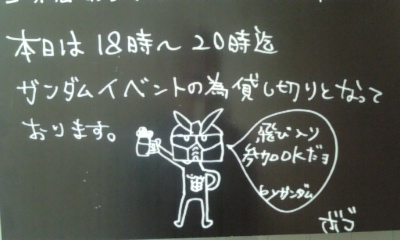 本日は18時〜20時迄
ザンダムイベントの為貸し切りとなって
おります。
飛び入り
参加OKだヨ
byザンダム